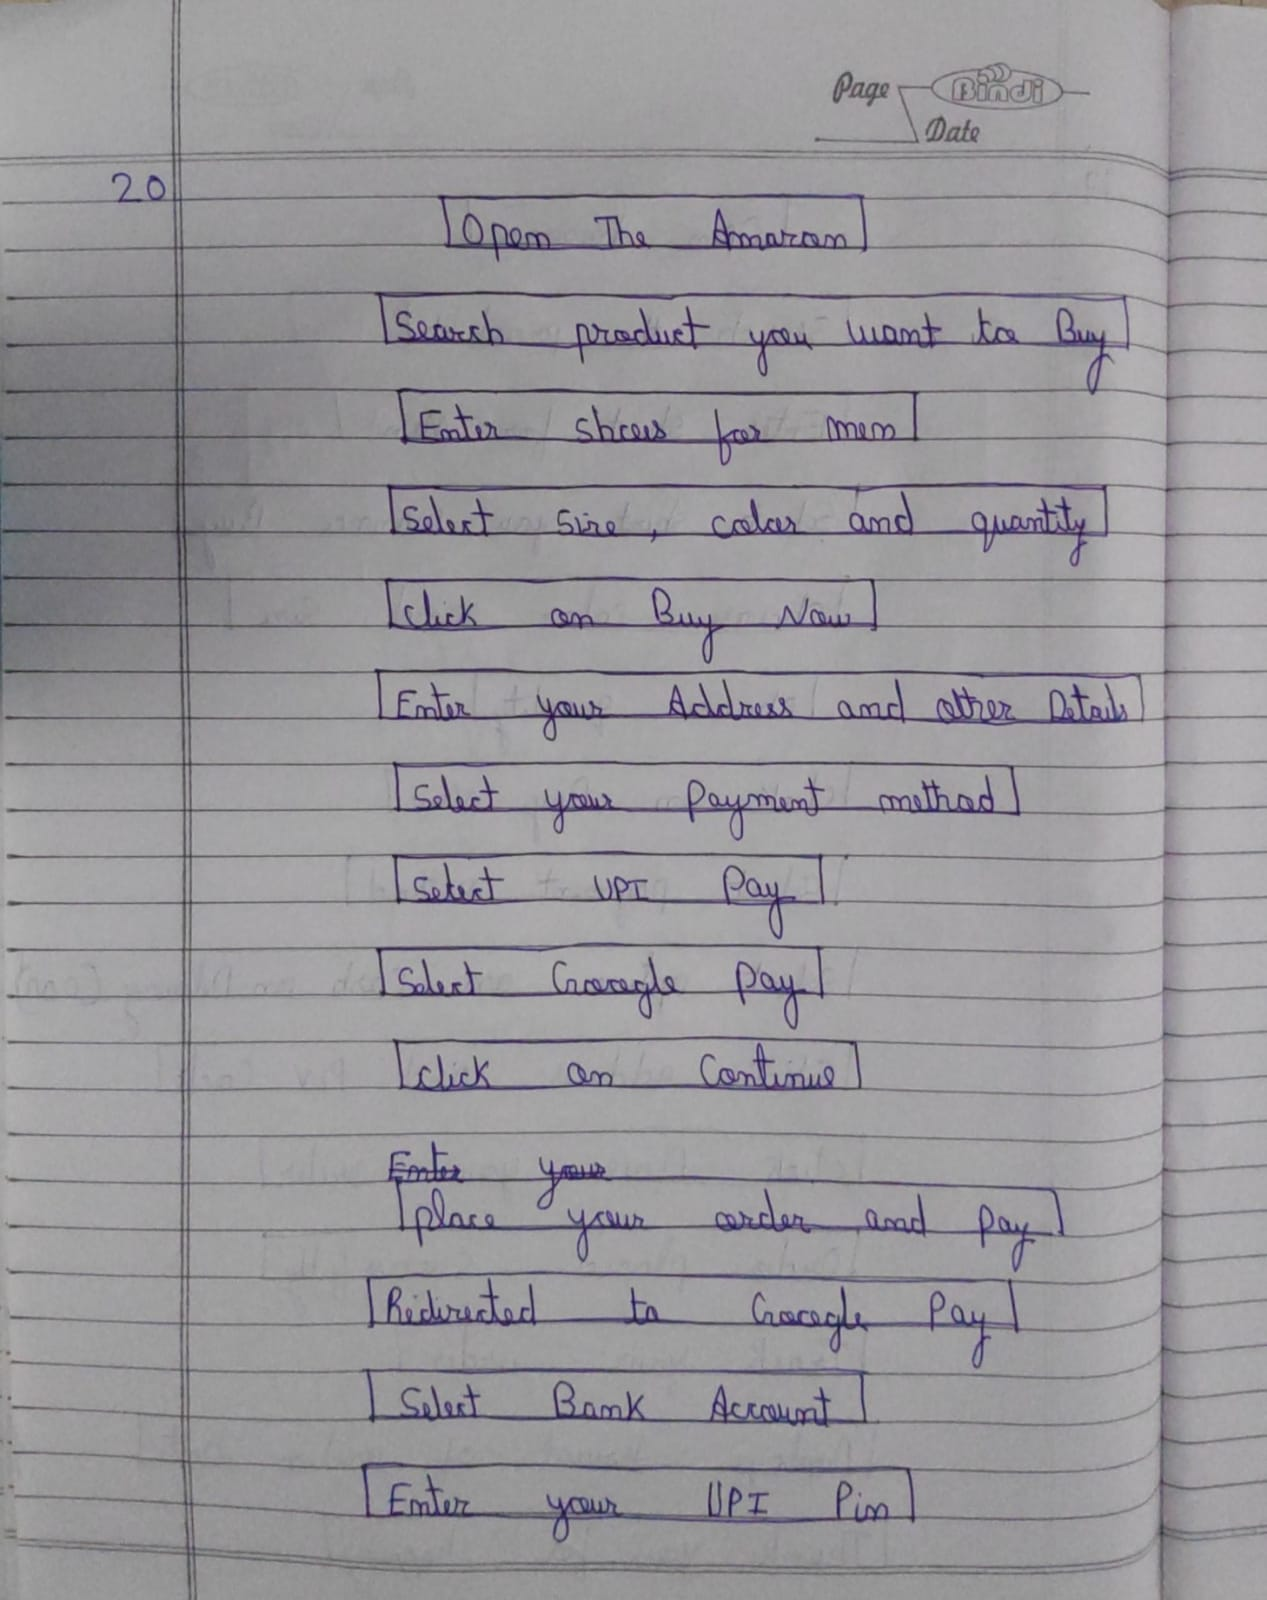 Page Bindi
Date
20
Open The Amazon
Search product you want to Buy
Enter shoes for men
Select size, color and quantity
Click on Buy Now
Enter your Address and other Details
Select your Payment method
Select UPI Pay
Select Google Pay
Click on Continue
Enter your
place your order and Pay
Redirected to Google Pay
Select Bank Account
Enter your UPI Pin